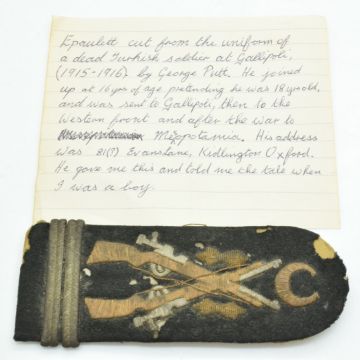 Epaulett cut from the uniform of
a dead Turkish soldier at Gallipoli,
(1915-1916) by George Putt. He joined
up at 16yrs of age pretending he was 18 yrs old,
and was sent to Gallipoli, then to the
western front and after the war to
Mesopotamia. His address
was 81(?) Evans Lane, Kidlington Oxford.
He gave me this and told me the tale when
I was a boy.